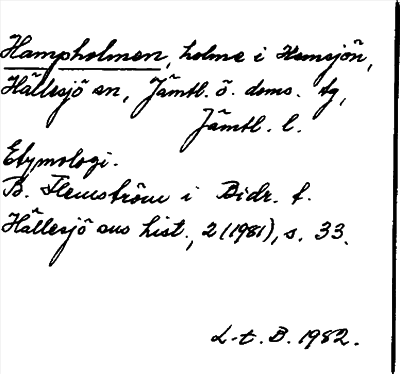 Hampholmen, holme i Hemsjön,
Hällesjö sn, Jämtl. ö. doms. tg,
Jämtl. l.
Etymologi.
B. Flemström i Bidr. t.
Hällesjö sns hist., 2 (1981), s. 33.
L-t. B. 1982.